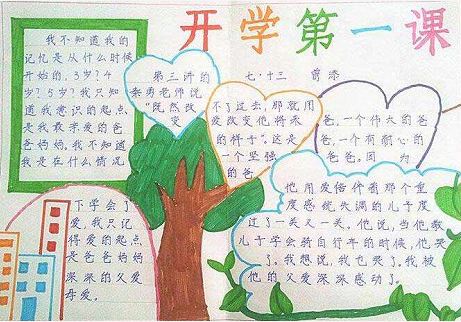 开学第一课
我不知道我的
记忆是从什么时候
开始的,3岁?4
岁?5岁?我只知
道我意识的起点
是我最亲爱的爸
爸妈妈,我不知道
我是在什么情况
下学会了
爱,我只记
得爱的起点
是爸爸妈妈
深深的父爱
母爱。
第三讲的
秦勇老师说
“既然改
变
七·十三
不了过去,那就用
爱改变他将来
的样子”。这是
一个坚强
的爸
爸,一个伟大的爸
爸,一个有耐心的
爸爸。因为
他用爱陪伴着那个重
度感统失调的儿子度
过了一关又一关。他说,当他教
儿子学会骑自行车的时候,他哭
了。我想说,我也哭了。我被
他的父爱深深感动了。